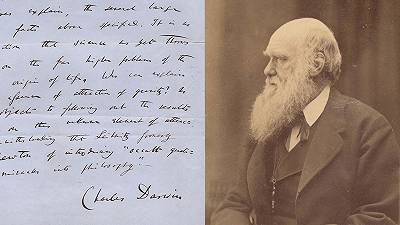 explain, the second larger
facts above specified. It is no
tion that science as yet throws
on the far higher problem of the
origin of life. Who can explain
essence of attraction of gravity? No
objects to following out the results
on this unknown element of attrac-
withstanding that Leibnitz formerly
newton of introducing "occult quali-
miracles into philosophy".—
Charles Darwin